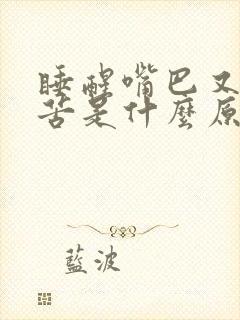 睡醒嘴巴又
苦是什麼原
藍波